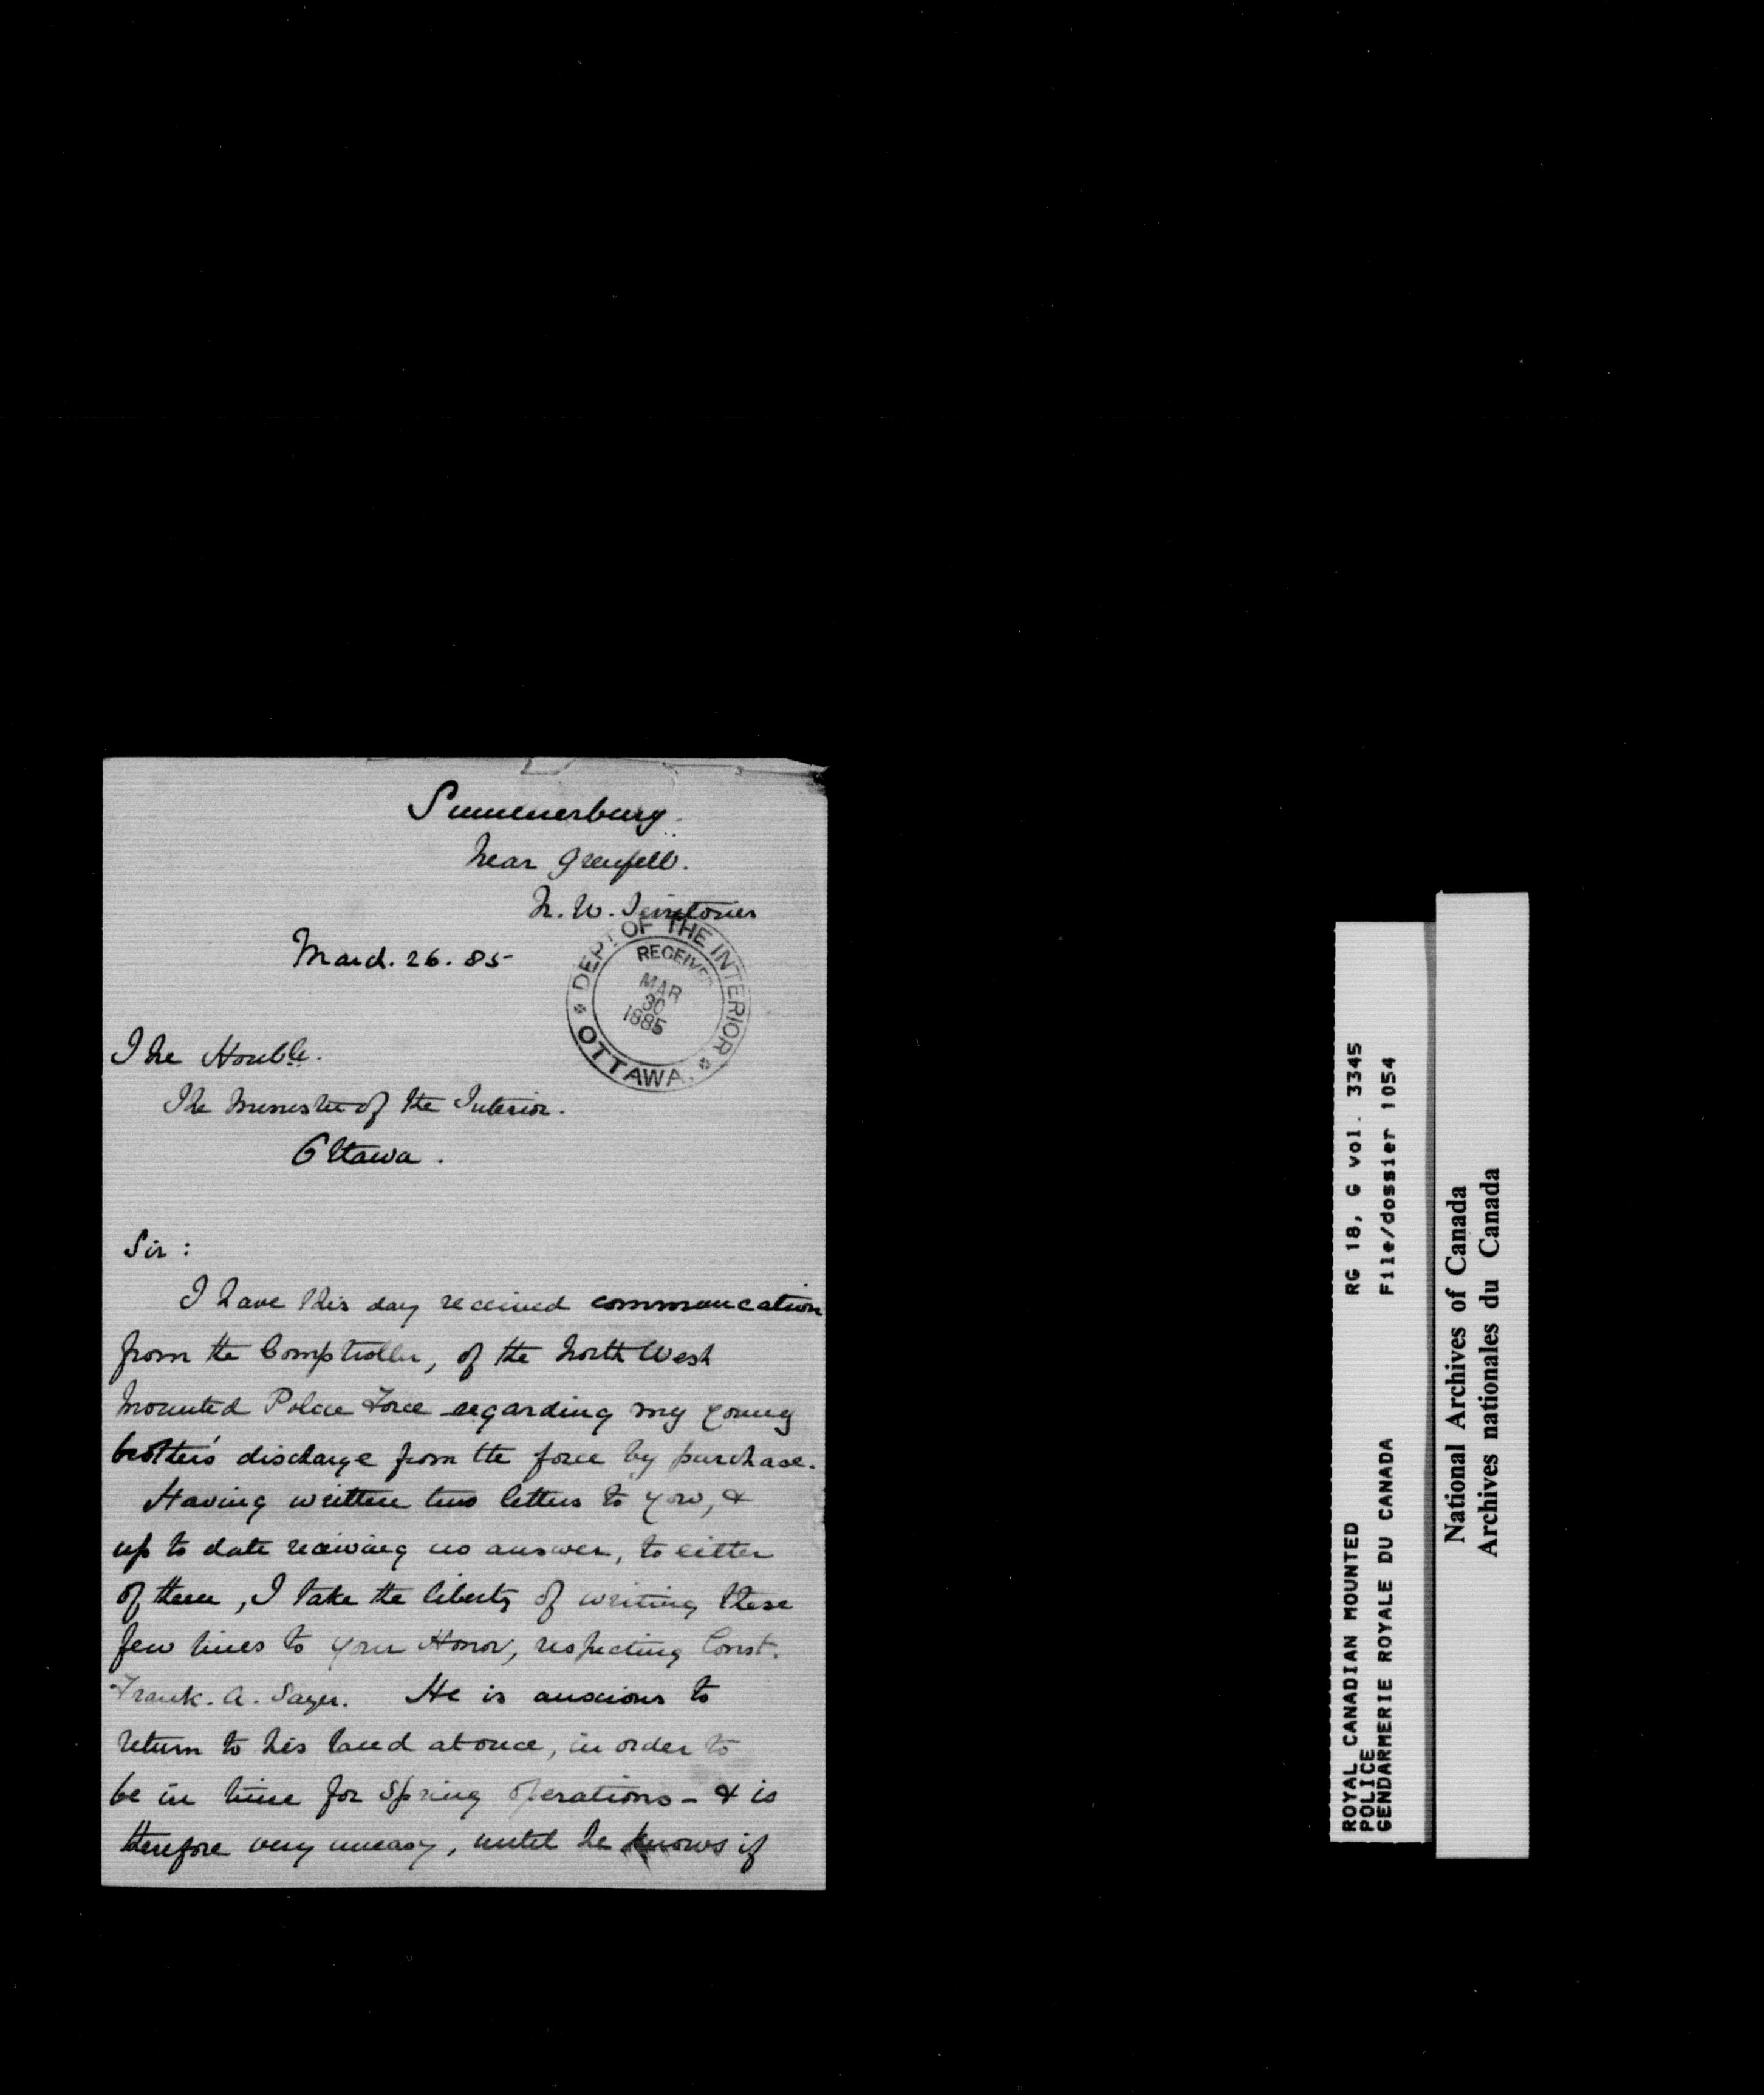 Summerburg.
Near Grenfell.
N. W. Territories
March. 26. 85
DEPT OF THE INTERIOR
RECEIVED
MAR
30
1885
OTTAWA.
The Honble.
The Minister of the Interior.
Ottawa.
Sir:
I have this day received communcation
from the Comptroller, of the North West
Mounted Police Force regarding my young
brother's discharge from the force by purchase.
Having written two letters to you, &
up to date receiving no answer, to either
of them, I take the liberty of writing these
few lines to your Honor, respecting Const.
Frank. A. Sayer. He is anxious to
return to his land at once, in order to
be in time for Spring operations - & is
therefore very uneasy, until he knows if
ROYAL CANADIAN MOUNTED POLICE
GENDARMERIE ROYALE DU CANADA
RG 18, G vol. 3345
File/dossier 1054
National Archives of Canada
Archives nationales du Canada